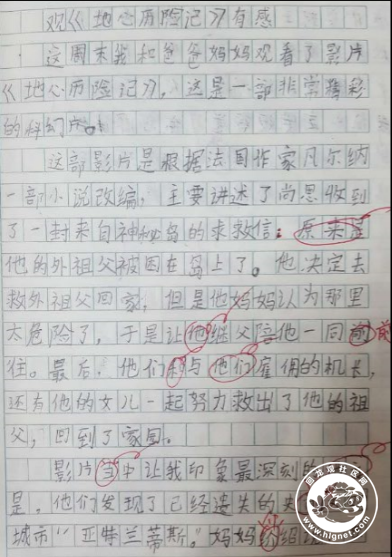 观《地心历险记》有感
这周末我和爸爸妈妈观看了影片
《地心历险记》,这是一部非常精彩
的科幻片。
这部影片是根据法国作家凡尔纳
一部小说改编,主要讲述了尚恩收到
了一封来自神秘岛的求救信:原来是
他的外祖父被困在岛上了。他决定去
救外祖父回家,但是他妈妈认为那里
太危险了,于是让他继父陪他一同前
住。最后,他们和与他们雇佣的机长,
还有他的女儿一起努力救出了他的祖
父,回到了家园。
影片当中让我印象最深刻的
是,他们发现了已经遗失的
城市"亚特兰蒂斯。"妈妈
回龙观社区网
www.hlgnet.com